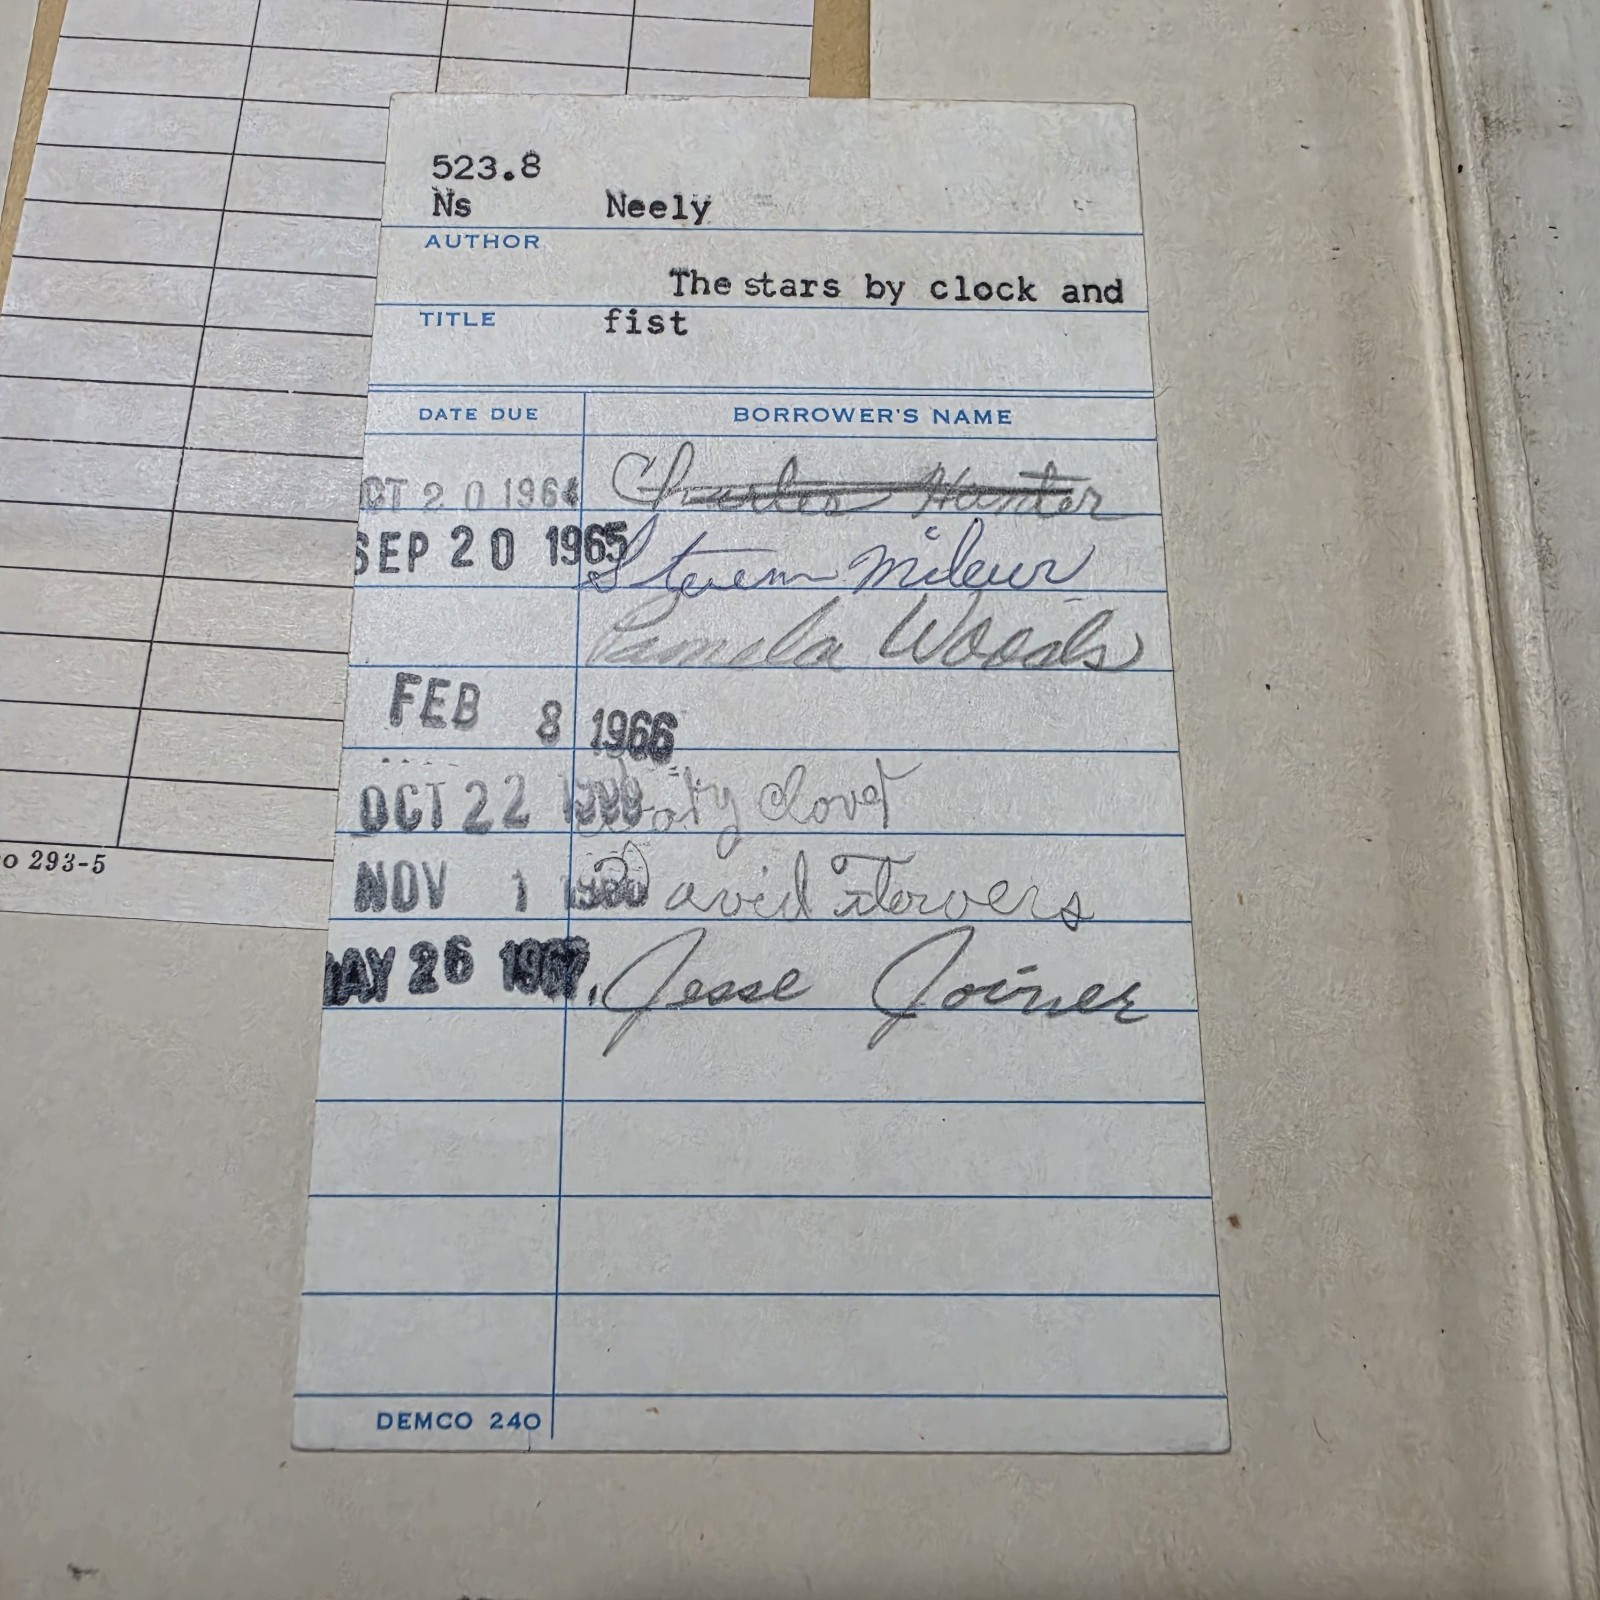 523.8
Ns Neely
AUTHOR
The stars by clock and
TITLE fist
DATE DUE BORROWER'S NAME
OCT 20 1964 Charles Hunter
SEP 20 1965 Steven
Pamela Woods
FEB 8 1966
OCT 22
NOV 1 David Flowers
MAY 26 1967 Jesse Joiner
DEMCO 240
293-5